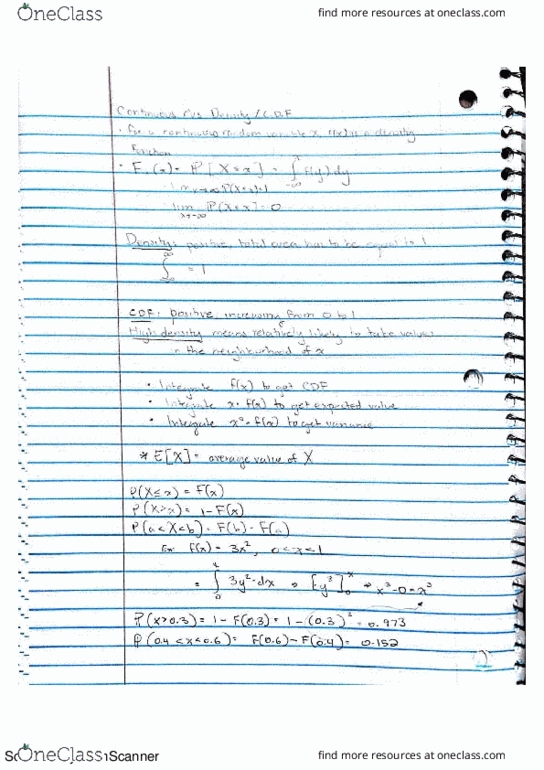 OneClass
find more resources at oneclass.com
Continuous Density / CDF
• For a continuous random variable X, f(x) is a density
function
• F (x) = P[X ≤ x] = ∫ f(y) dy
lim P(X ≤ x) = 1
lim P(X ≤ x) = 0
x→-∞
Density: positive, total area has to be equal to 1
∫ = 1
CDF: positive, increasing from 0 to 1
High density means relatively likely to take values
in the neighborhood of x
• Integrate f(x) to get CDF
• Integrate x·f(x) to get expected value
• Integrate x²·f(x) to get variance
* E[X] = average value of X
P(X ≤ x) = F(x)
P(X > x) = 1 - F(x)
P(a < X < b) = F(b) - F(a)
Ex: f(x) = 3x², 0 < x < 1
= ∫₀ˣ 3y² dx = [y³]₀ˣ → x³ - 0 = x³
P(x > 0.3) = 1 - F(0.3) = 1 - (0.3)³ = 0.973
P(0.4 < x < 0.6) = F(0.6) - F(0.4) = 0.152
OneClass
Scanner
find more resources at oneclass.com